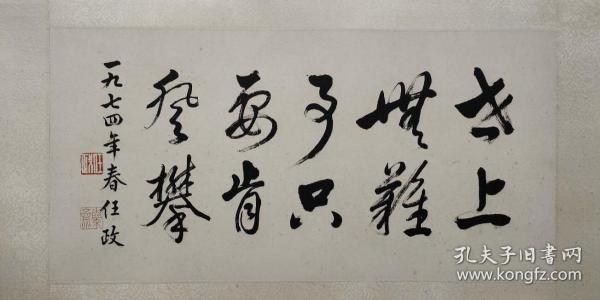 世上
無難
事只
要肯
登攀
一九七四年春任政
孔夫子旧书网
www.kongfz.com